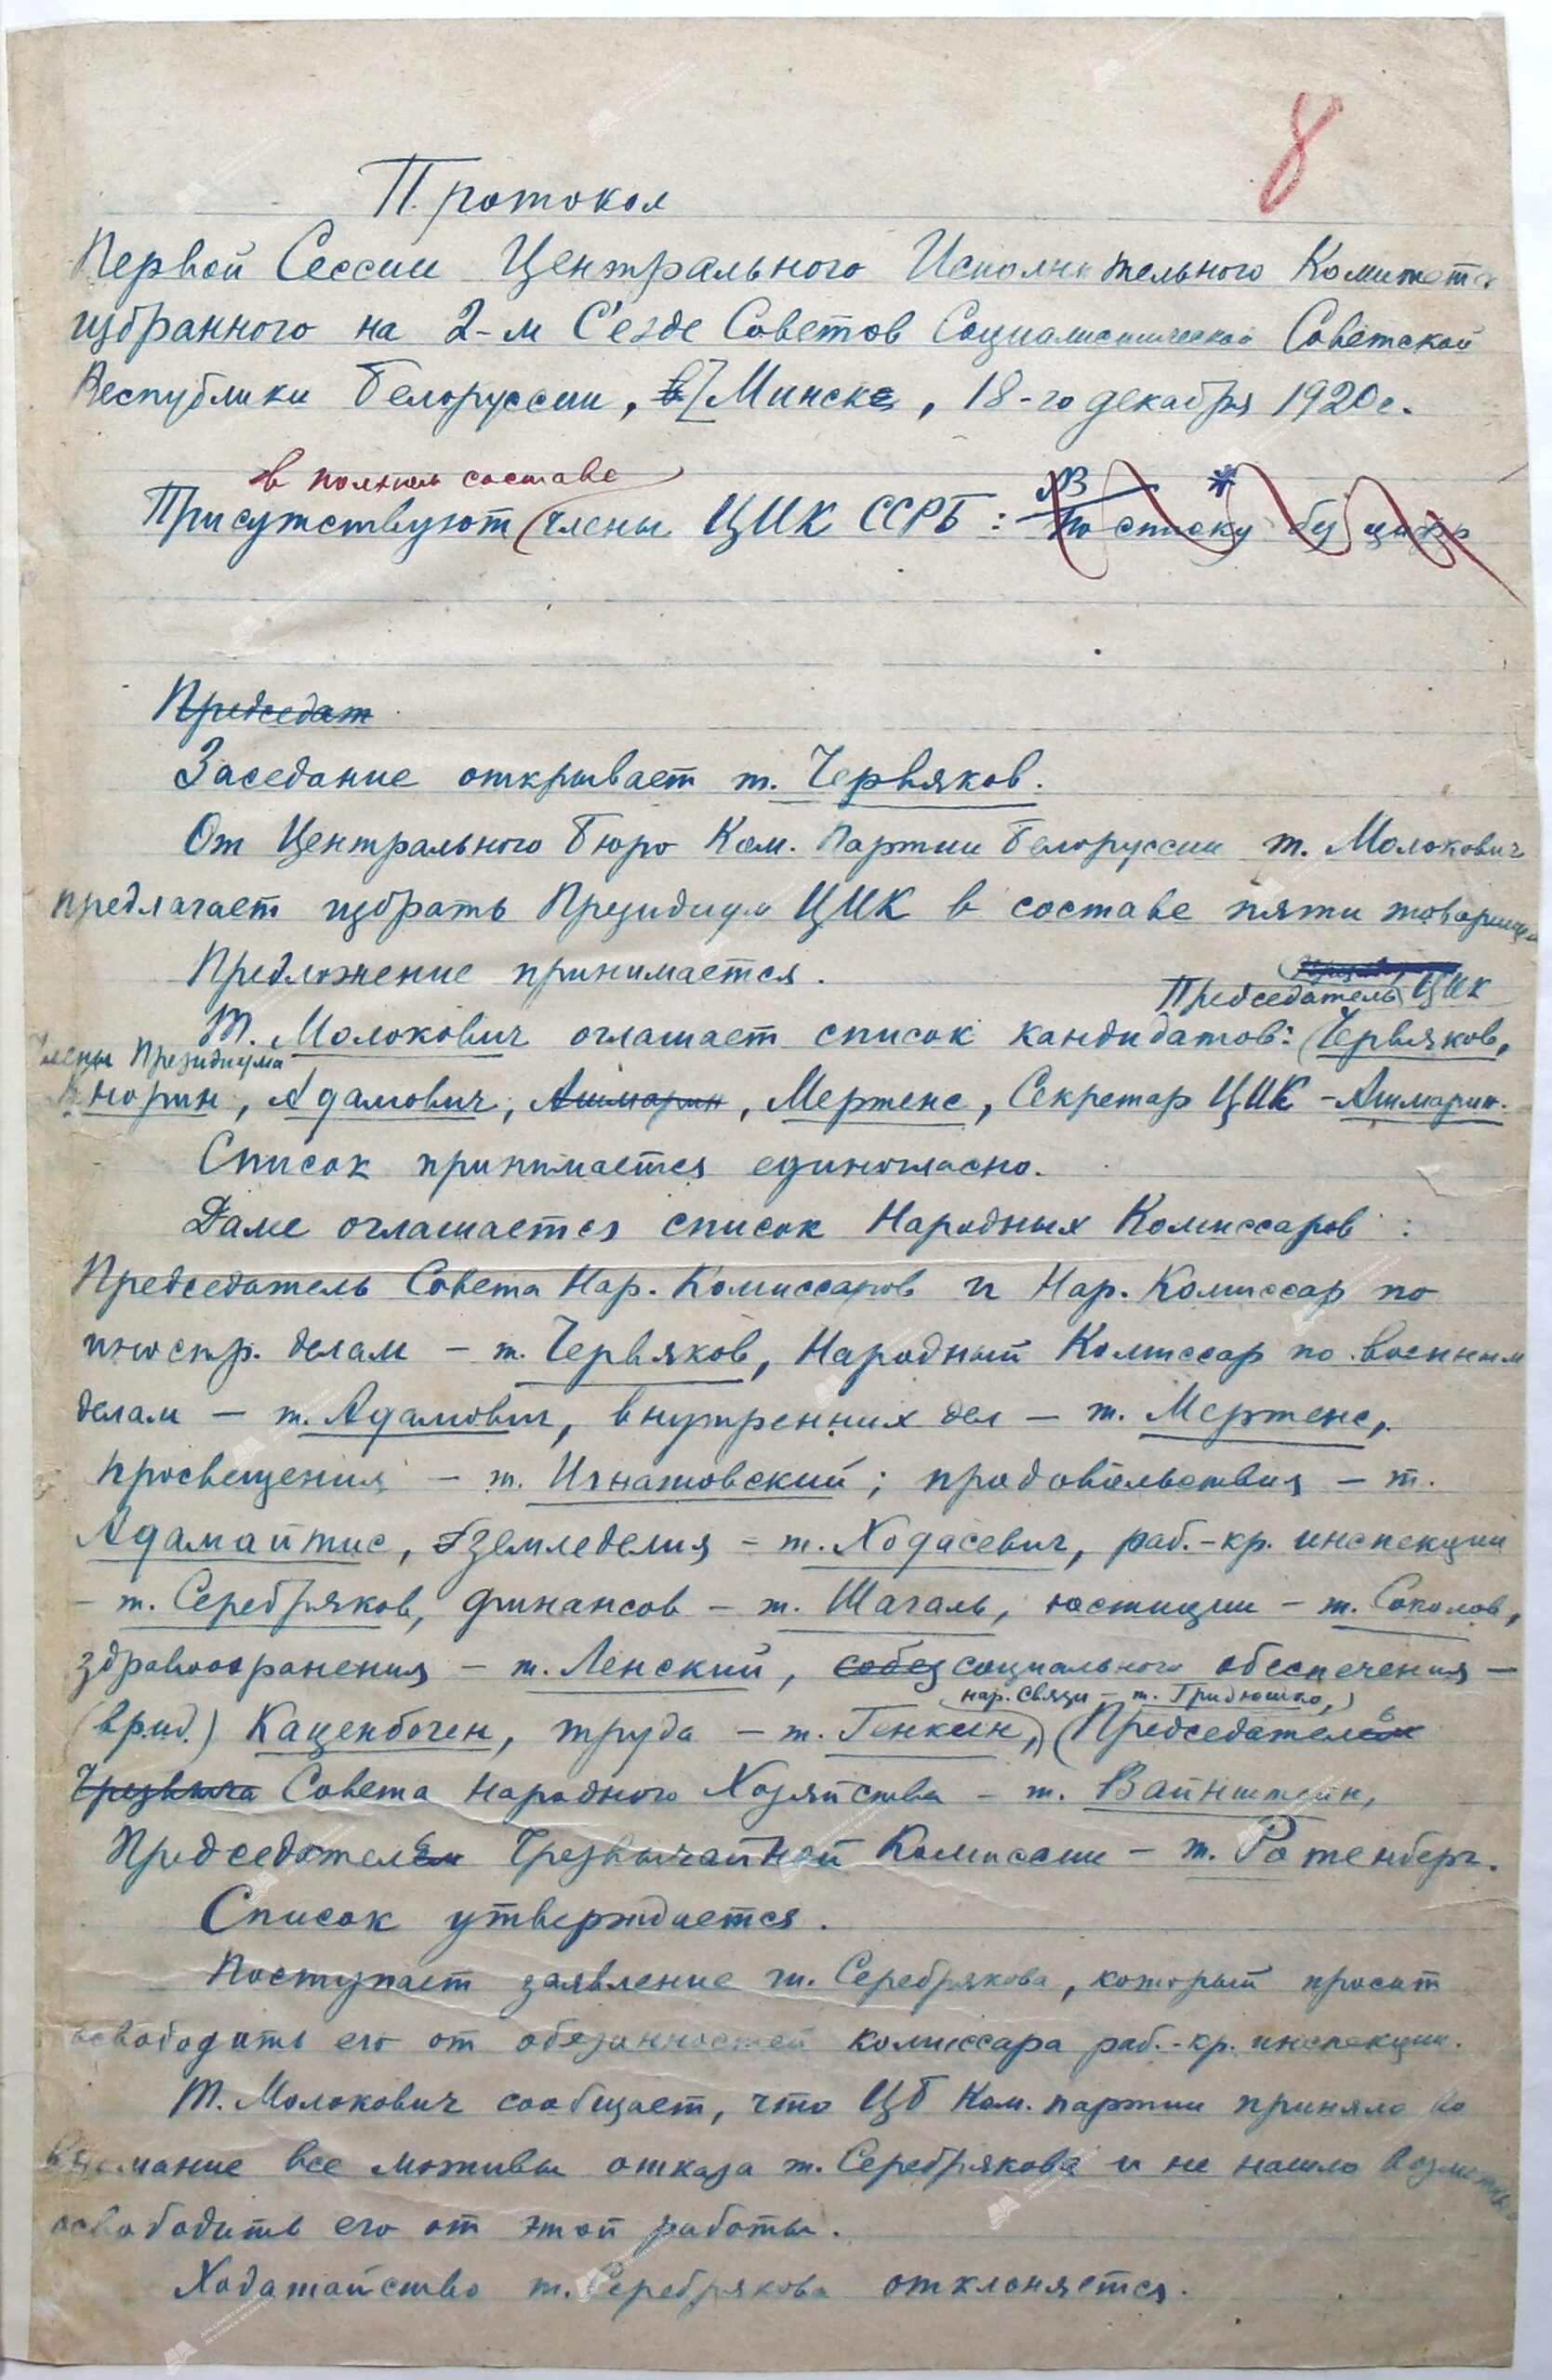 8
Протокол
Первой Сессии Центрального Исполнительного Комитета
избранного на 2-м С'езде Советов Социалистической Советской
Республики Белоруссии, в Минске, 18-го декабря 1920 г.
в полном составе
Присутствуют члены ЦИК ССРБ: по списку
Председат
Заседание открывает т. Червяков.
От Центрального Бюро Ком. Партии Белоруссии т. Молокович
предлагает избрать Президиум ЦИК в составе пяти товарищей
Предложение принимается.
Председатель ЦИК
Т. Молокович оглашает список кандидатов: Червяков,
Члены Президиума
Кнорин, Адамович, Ашмарин, Мертенс, Секретар ЦИК - Ашмарин.
Список принимается единогласно.
Далее оглашается список Народных Комиссаров:
Председатель Совета Нар. Комиссаров и Нар. Комиссар по
иностр. делам - т. Червяков, Народный Комиссар по военным
делам - т. Адамович, внутренних дел - т. Мертенс,
просвещения - т. Игнатовский; продовольствия - т.
Адамайтис, земледелия - т. Ходасевич, раб.-кр. инспекции
- т. Серебряков, финансов - т. Шагаль, юстиции - т. Соколов,
здравоохранения - т. Ленский, собез социального обеспечения -
нар. связи - т. Гридюшко,
(врид.) Каценбоген, труда - т. Генкин, Председатель
Чрезвыча Совета Народного Хозяйства - т. Вайнштейн,
Председатель Чрезвычайной Комиссии - т. Ротенберг.
Список утверждается.
Поступает заявление т. Серебрякова, который просит
освободить его от обязанностей комиссара раб.-кр. инспекции.
Т. Молокович сообщает, что ЦБ Ком. партии приняло во
внимание все мотивы отказа т. Серебрякова и не нашло
освободить его от этой работы.
Ходатайство т. Серебрякова отклоняется.